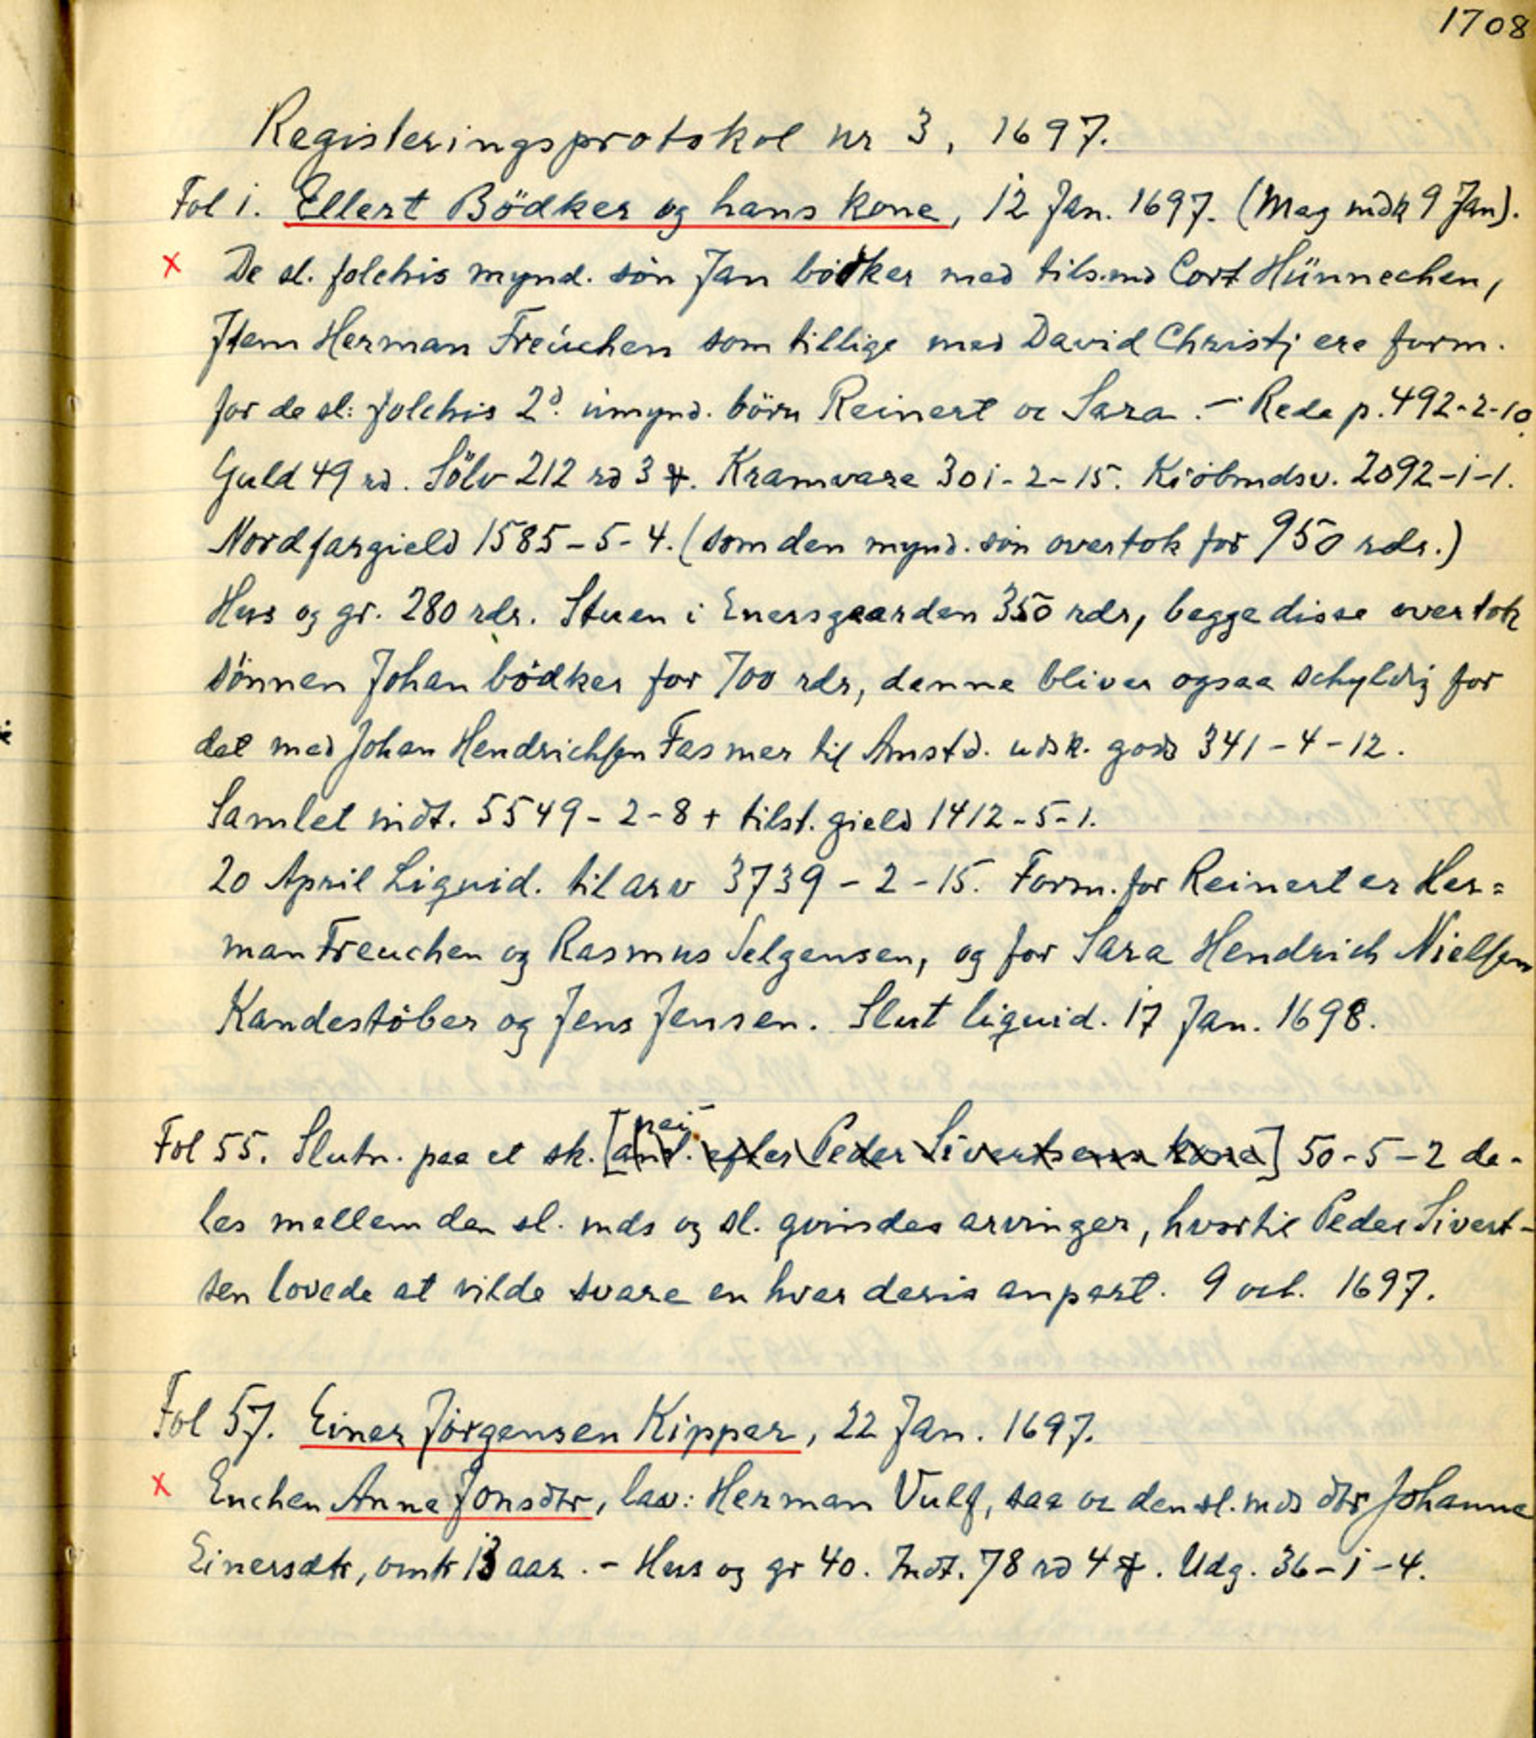 1708
Registeringsprotokol nr 3, 1697.
Fol 1. Ellert Bödker og hans kone, 12 Jan. 1697. (Mag mdk 9 Jan).
x De sl. folchis mynd. søn Jan bødker med tils.md Cort Hünnechen,
Item Herman Freuchen som tillige med David Christj ere form.
for de sl: folchis 2d. umynd. børn Reinert oc Sara. - Rede p. 492-2-10.
Guld 49 rd. Sölv 212 rd 3 ꝟ. Kramvare 301-2-15. Kiöbmdsv. 2092-1-1.
Nordfargield 1585-5-4. (som den mynd. søn overtok for 950 rdr.)
Hus og gr. 280 rdr. Stuen i Enersgaarden 350 rdr, begge disse overtok
sønnen Johan bødker for 700 rdr, denne bliver ogsaa schyldig for
det med Johan Hendrichsen Fasmer til Amstd. udsk. gods 341-4-12.
Samlet indt. 5549-2-8 + tilst. gield 1412-5-1.
20 April Liquid. til arv 3739-2-15. Form. for Reinert er Her=
man Freuchen og Rasmus Selgensen, og for Sara Hendrich Nielsen
Kandestøber og Jens Jensen. Slut liquid. 17 Jan. 1698.
Fol 55. Slutn. paa et sk. [and. efter Peder Sivertsens kone] nei 50-5-2 de-
les mellem den sl. mds og sl. qvindes arvinger, hvortil Peder Sivert-
sen lovede at vilde svare en hver deris anpart. 9 oct. 1697.
Fol 57. Einer Jørgensen Kipper, 22 Jan. 1697.
x Enchen Anne Jonsdtr, lav: Herman Vulf, saa oc den sl. mds dtr Johanne
Einersdtr, omk 13 aar. - Hus og gr 40. Indt. 78 rd 4 ꝟ. Udg. 36-1-4.